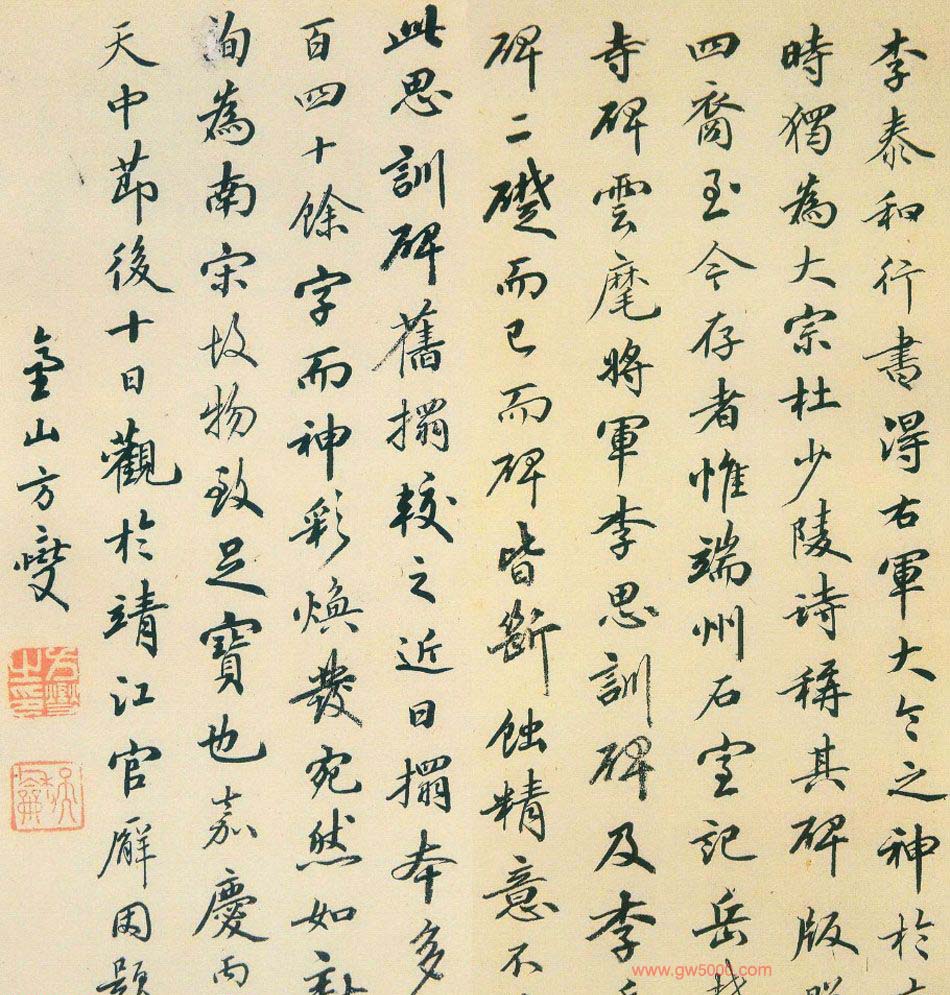 李泰和行書得右軍大令之神於
時獨為大宗杜少陵詩稱其碑版
四裔至今存者惟端州石室記岳
寺碑雲麾將軍李思訓碑及李
碑二礎而已而碑皆斷蝕精意不
此思訓碑舊搨較之近日搨本多
百四十餘字而神彩煥發宛然如
洵為南宋故物致足寶也嘉慶丙
天中節後十日觀於靖江官廨因題
金山方燮
www.gw5000.com